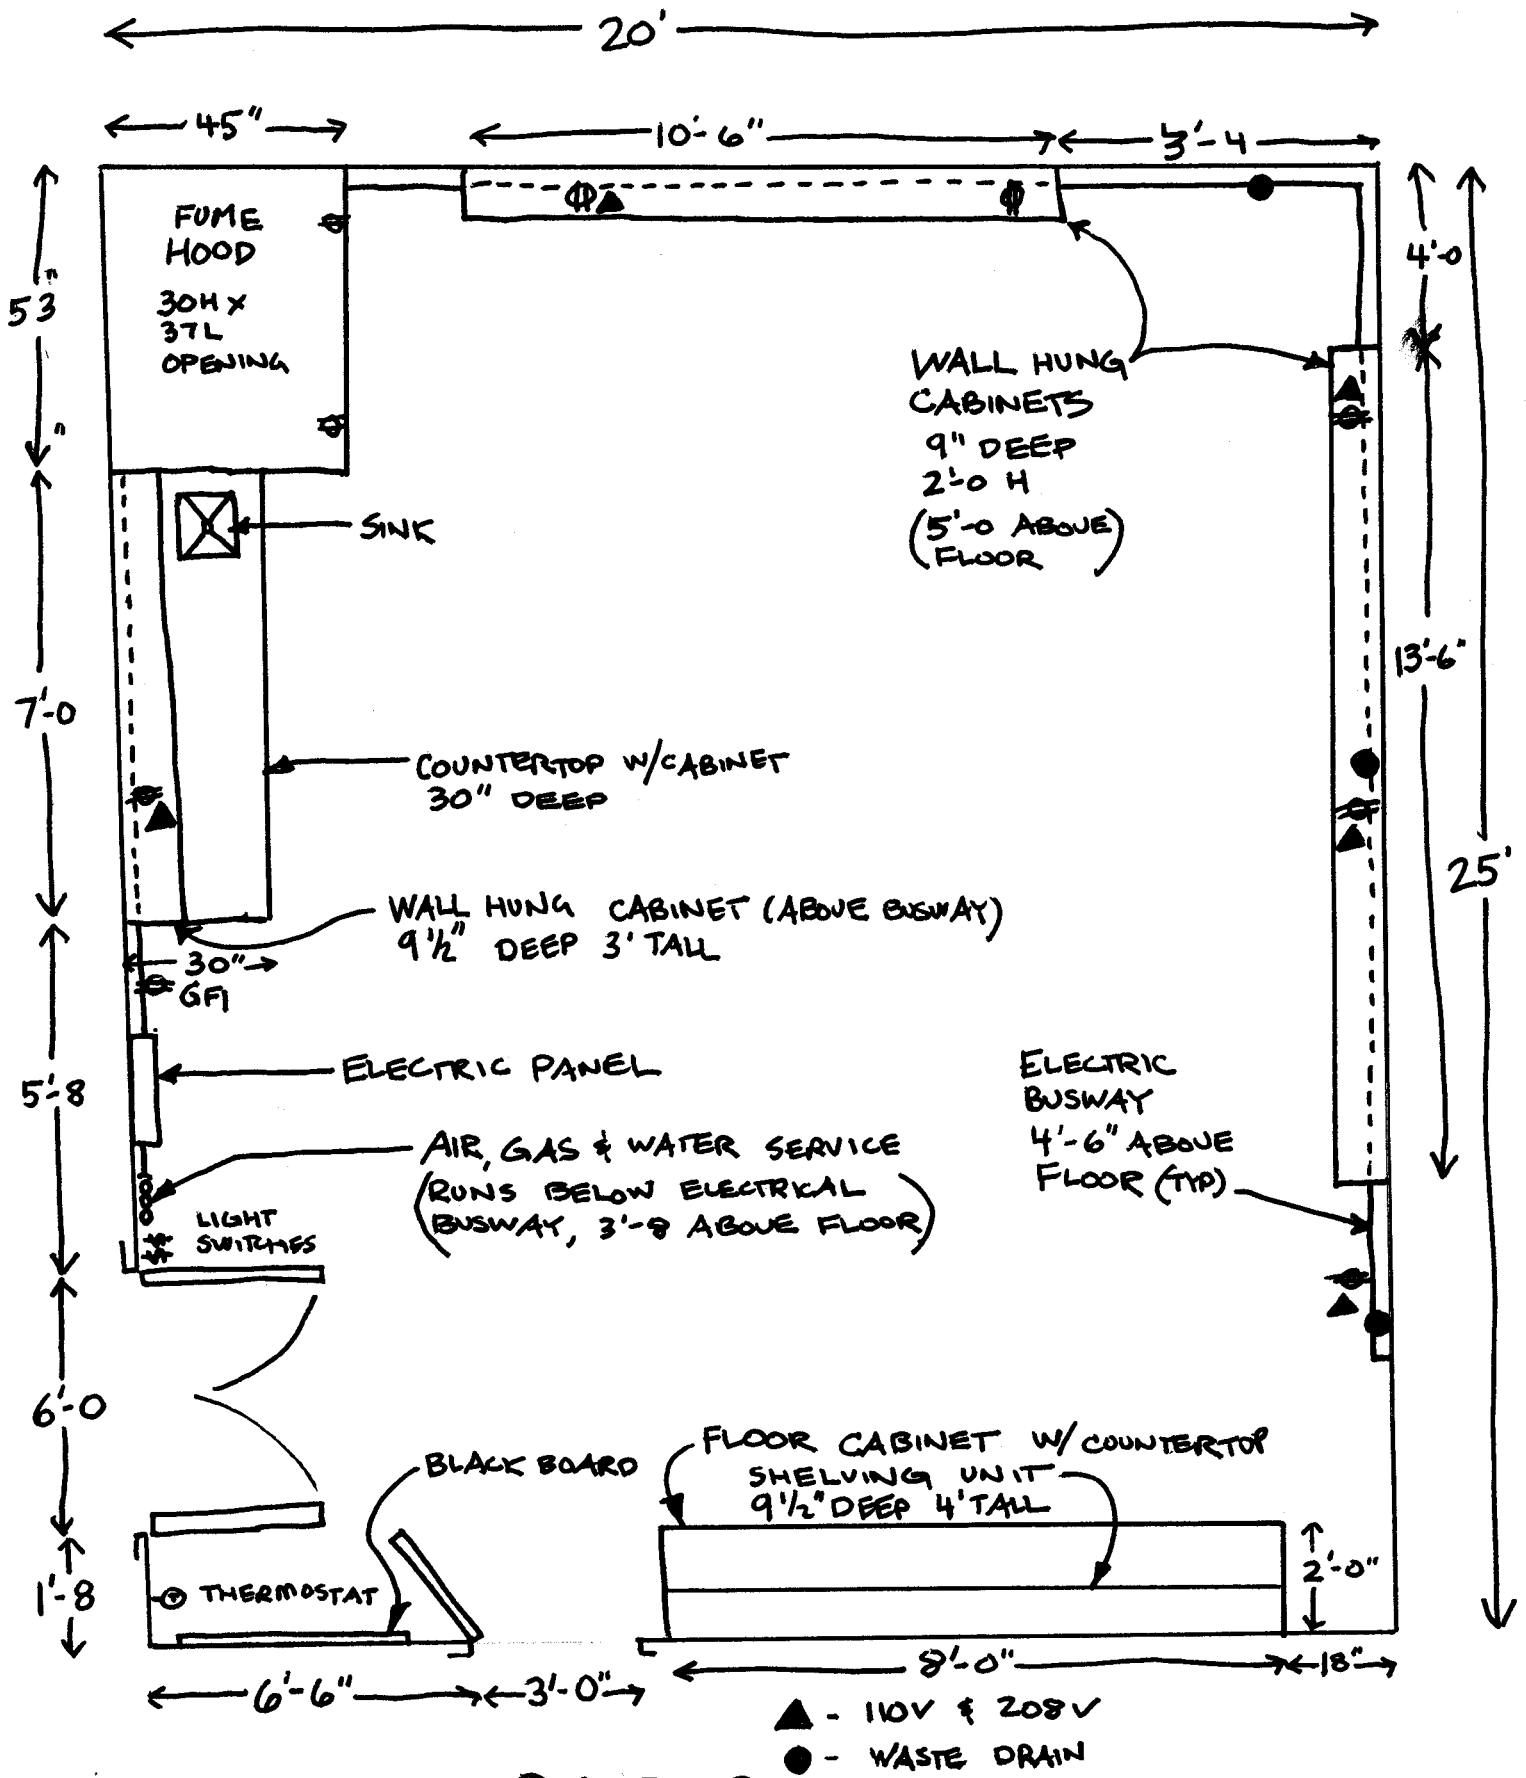 20'
45"
10'-6"
4'-0
FUME
HOOD
30H x
37L
OPENING
53"
WALL HUNG
CABINETS
9" DEEP
2'-0 H
(5'-0 ABOVE
FLOOR)
SINK
13'-6"
7'-0
COUNTERTOP W/CABINET
30" DEEP
25'
WALL HUNG CABINET (ABOVE BUSWAY)
9½" DEEP 3' TALL
30"
GFI
ELECTRIC PANEL
5'-8
ELECTRIC
BUSWAY
4'-6" ABOVE
FLOOR (TYP)
AIR, GAS & WATER SERVICE
(RUNS BELOW ELECTRICAL
BUSWAY, 3'-8 ABOVE FLOOR)
LIGHT
SWITCHES
6'-0
BLACK BOARD
FLOOR CABINET W/COUNTERTOP
SHELVING UNIT
9½" DEEP 4' TALL
2'-0"
1'-8
THERMOSTAT
6'-6"
3'-0"
8'-0"
18"
- 110V & 208V
- WASTE DRAIN